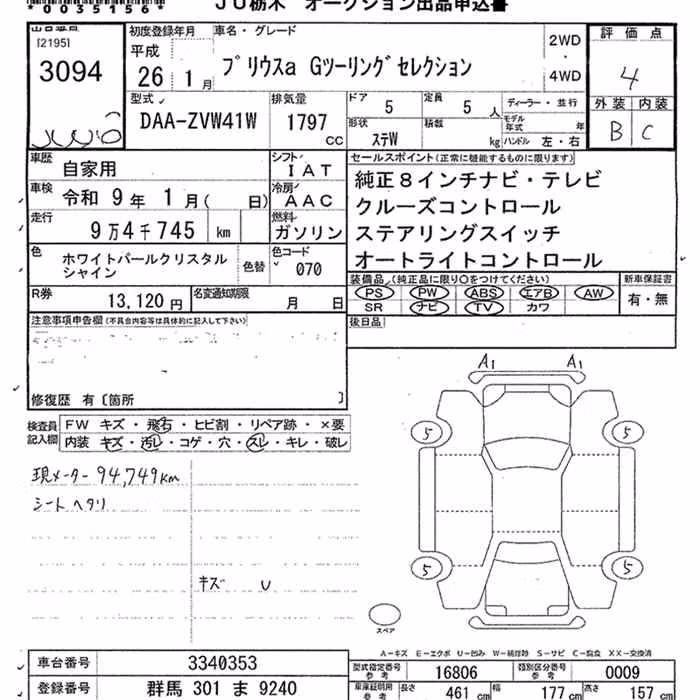 *0035156*
JU栃木 オークション出品申込書
出品番号
[2195]
3094
初度登録年月
平成
26年 1月
車名・グレード
プリウスα Gツーリングセレクション
2WD
・
4WD
評価点
4
外装 内装
B C
型式
DAA-ZVW41W
排気量
1797
cc
ドア
5
定員
5 人
ディーラー・並行
形状
ステW
積載
kg
モデル年式 年
ハンドル 左・右
車歴
自家用
シフト
IAT
車検
令和 9年 1月( 日)
冷房
AAC
走行
9万4千745 km
燃料
ガソリン
色
ホワイトパールクリスタル
シャイン
色替
色コード
070
R券
13,120円
名変通知期限
月 日
セールスポイント(正常に機能するものに限ります)
純正8インチナビ・テレビ
クルーズコントロール
ステアリングスイッチ
オートライトコントロール
装備品(純正品に限り〇をつけてください)
PS PW ABS エアB AW
SR ナビ TV カワ
新車保証書
有・無
後日品
注意事項申告欄(不具合内容等は具体的に記入して下さい)
修復歴 有〔箇所 〕
検査員
記入欄
FW キズ・飛石・ヒビ割・リペア跡・×要
内装 キズ・汚レ・コゲ・穴・スレ・キレ・破レ
現メーター 94,749km
シートヘタリ
キズ U
A1 A1
5 5
5 5
スペア
A-キズ E-エクボ U-凹み W-補修跡 S-サビ C-腐食 XX-交換済
車台番号
3340353
登録番号
群馬 301 ま 9240
型式指定番号
参考
16806
類別区分番号
参考
0009
車庫証明用
参考
長さ
461 cm
幅
177 cm
高さ
157 cm